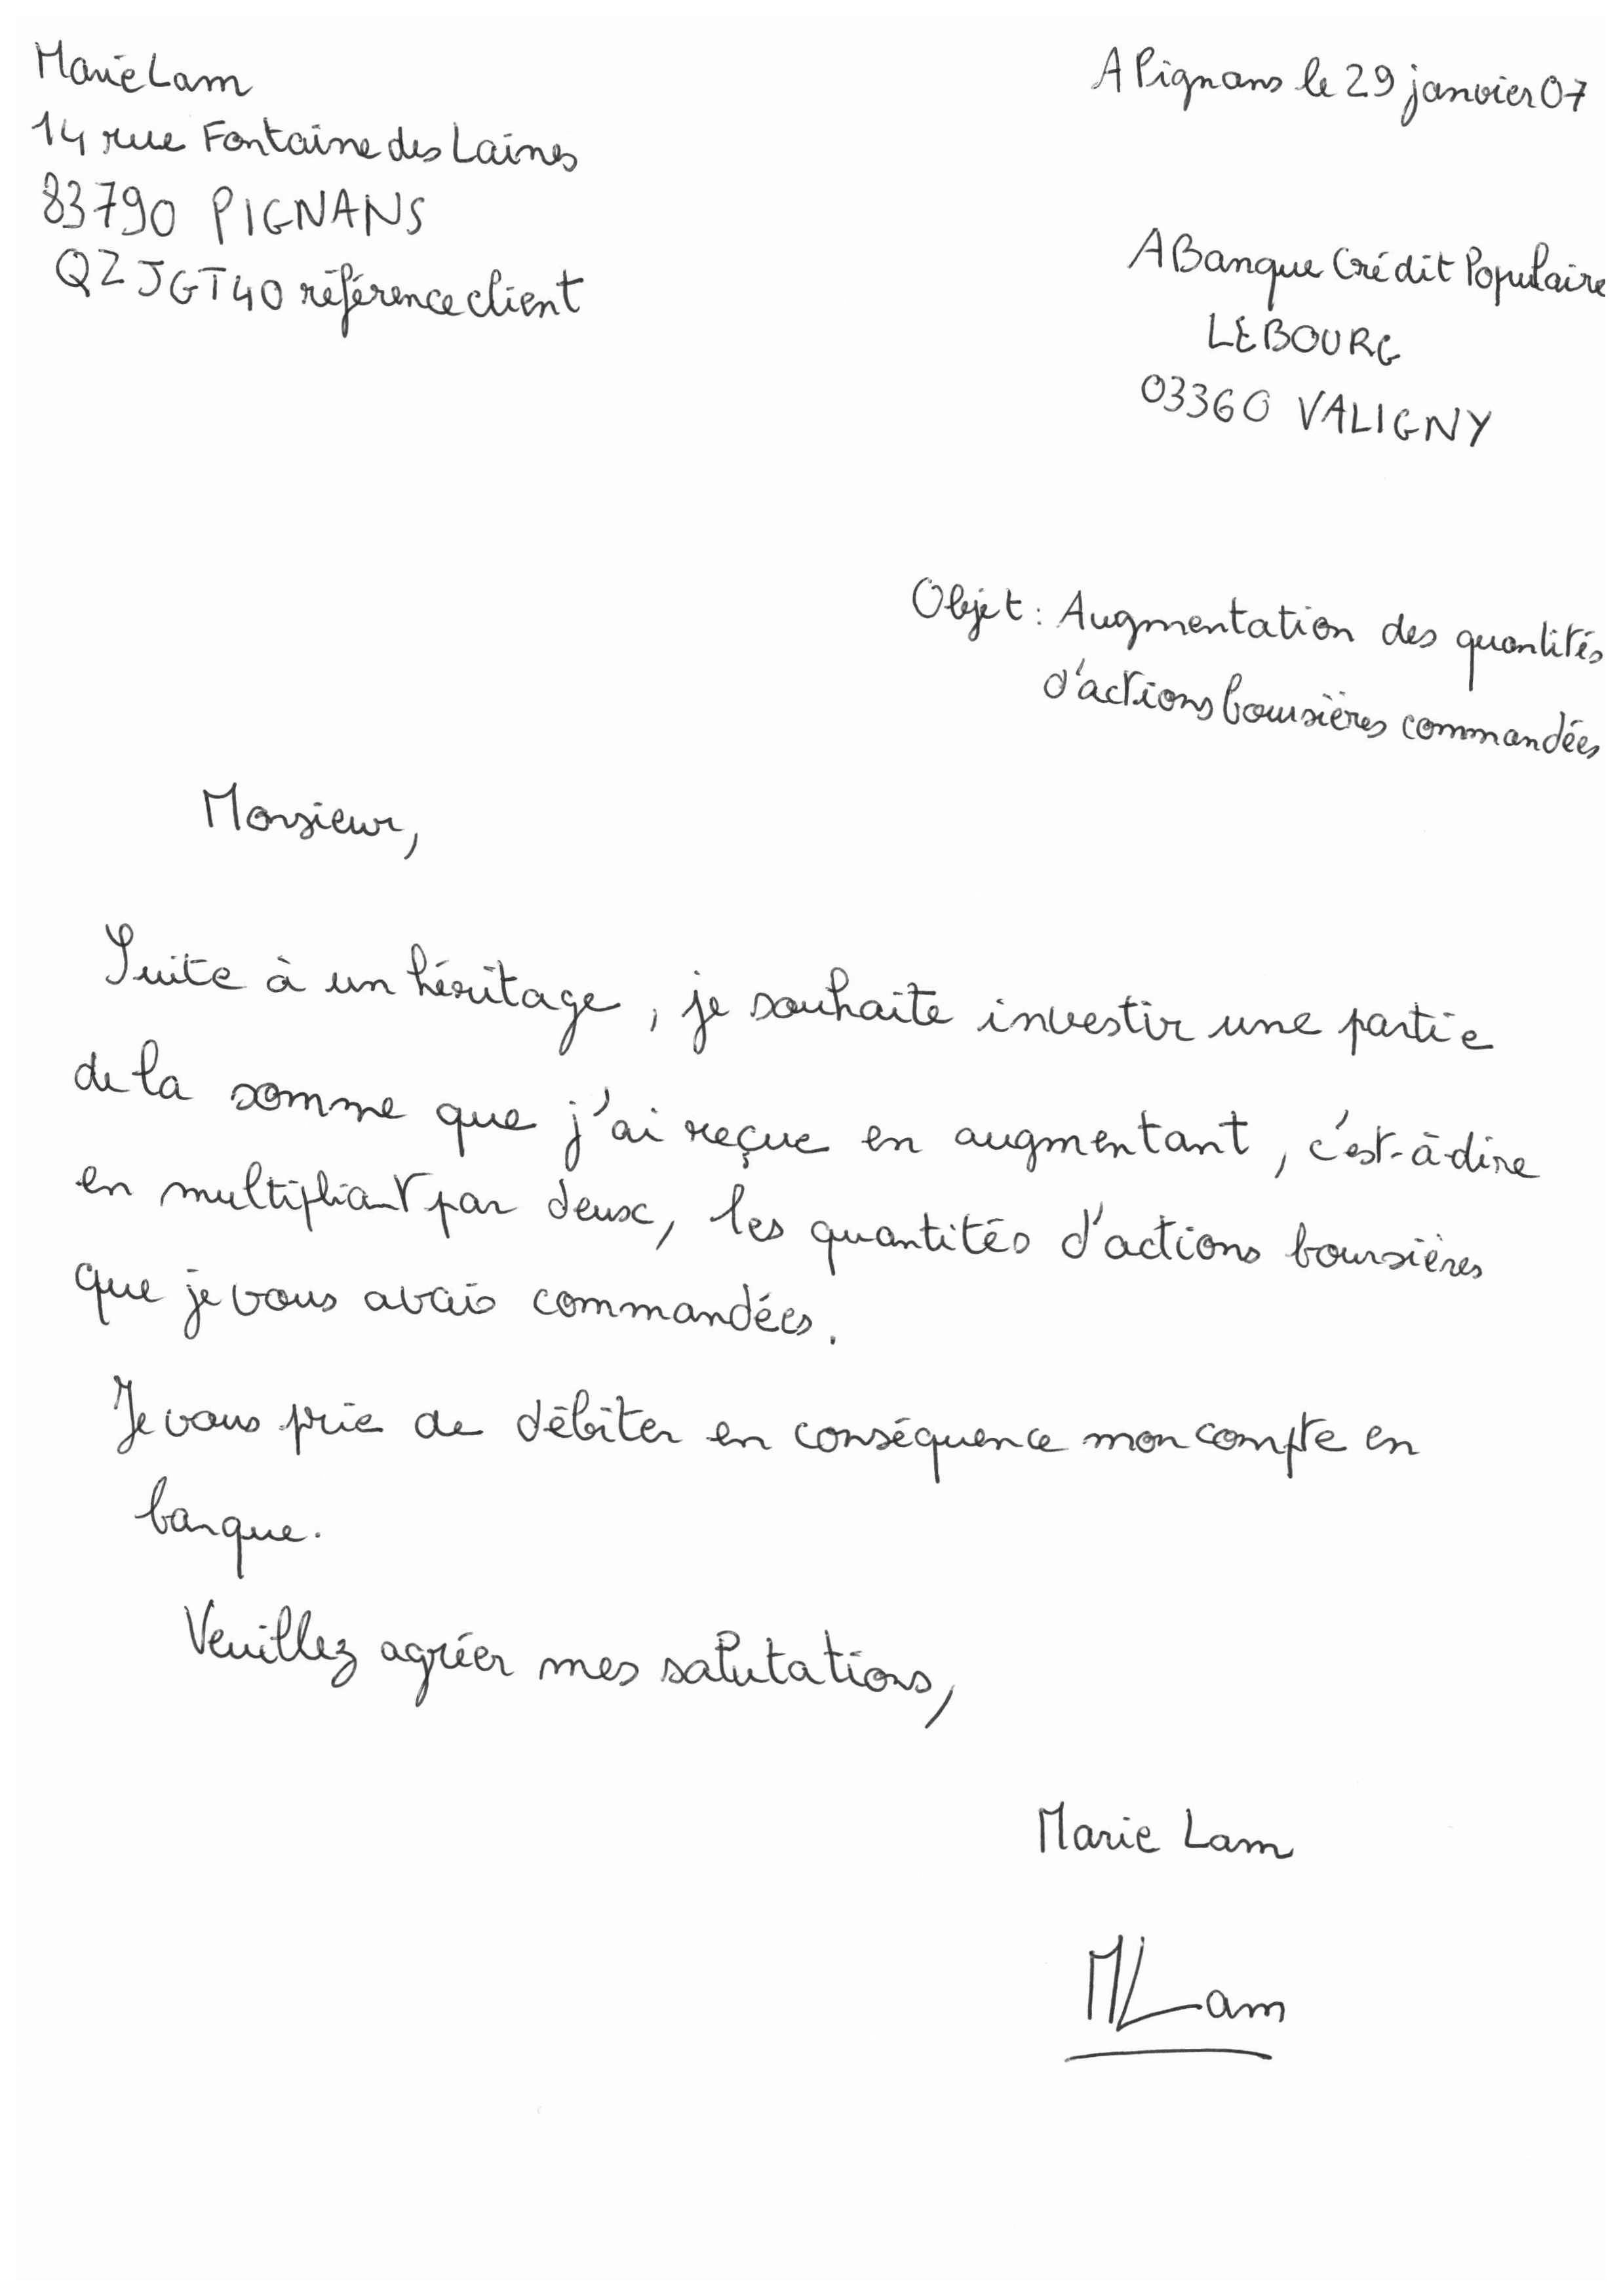 Marie Lam
14 rue Fontaine des Laines
83790 PIGNANS
QZJGT40 référence client
A Pignans le 29 janvier 07
A Banque Crédit Populaire
LE BOURG
03360 VALIGNY
Objet : Augmentation des quantités
d'actions boursières commandées
Monsieur,
Suite à un héritage, je souhaite investir une partie
de la somme que j'ai reçue en augmentant, c'est-à-dire
en multipliant par deux, les quantités d'actions boursières
que je vous avais commandées.
Je vous prie de débiter en conséquence mon compte en
banque.
Veuillez agréer mes salutations,
Marie Lam
MLam